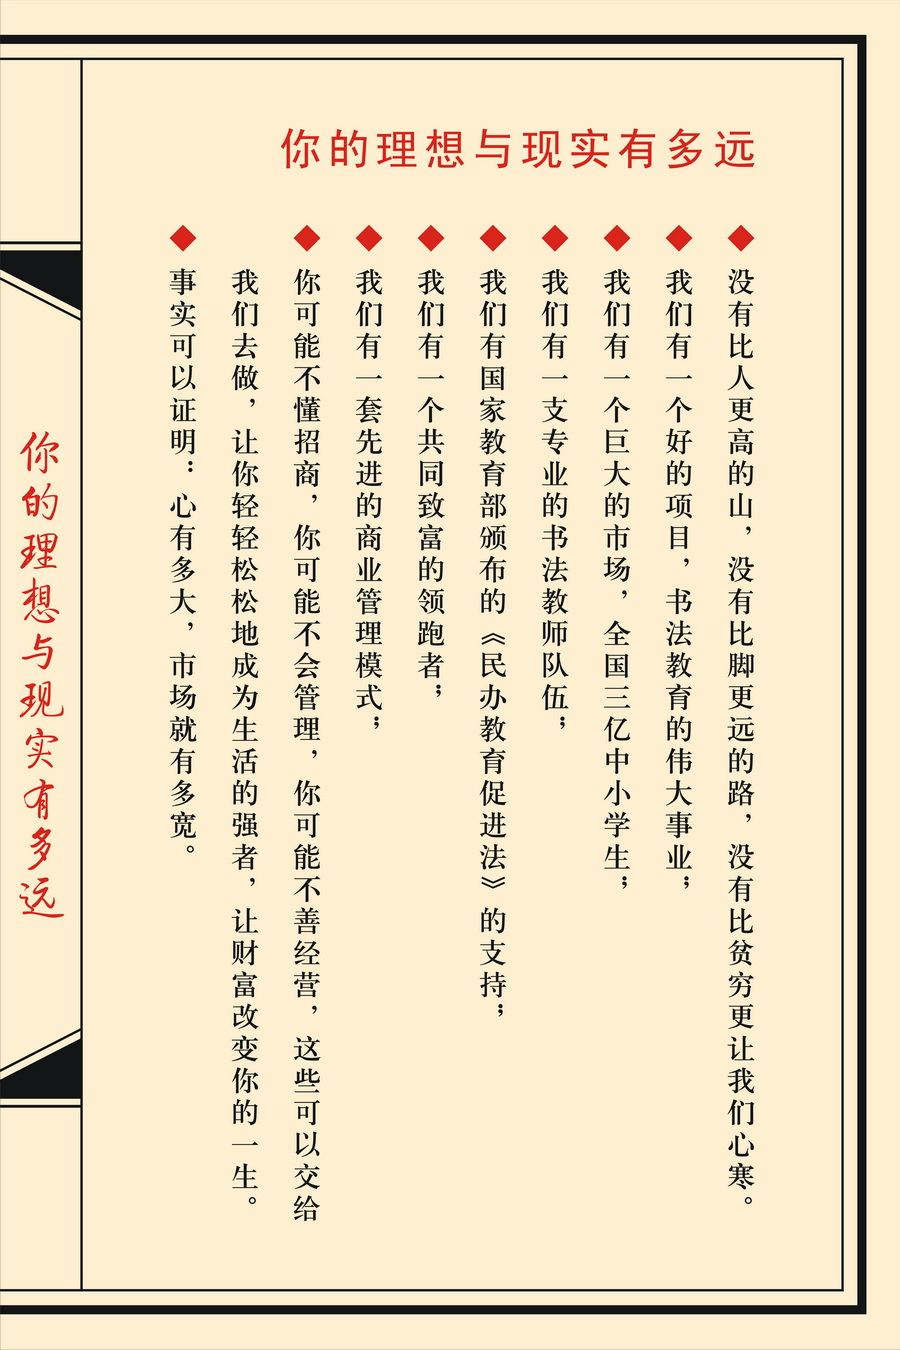 你的理想与现实有多远
没有比人更高的山，没有比脚更远的路，没有比贫穷更让我们心寒。
我们有一个好的项目，书法教育的伟大事业；
我们有一个巨大的市场，全国三亿中小学生；
我们有一支专业的书法教师队伍；
我们有国家教育部颁布的《民办教育促进法》的支持；
我们有一个共同致富的领跑者；
我们有一套先进的商业管理模式；
你可能不懂招商，你可能不会管理，你可能不善经营，这些可以交给
我们去做，让你轻轻松松地成为生活的强者，让财富改变你的一生。
事实可以证明：心有多大，市场就有多宽。
你的理想与现实有多远